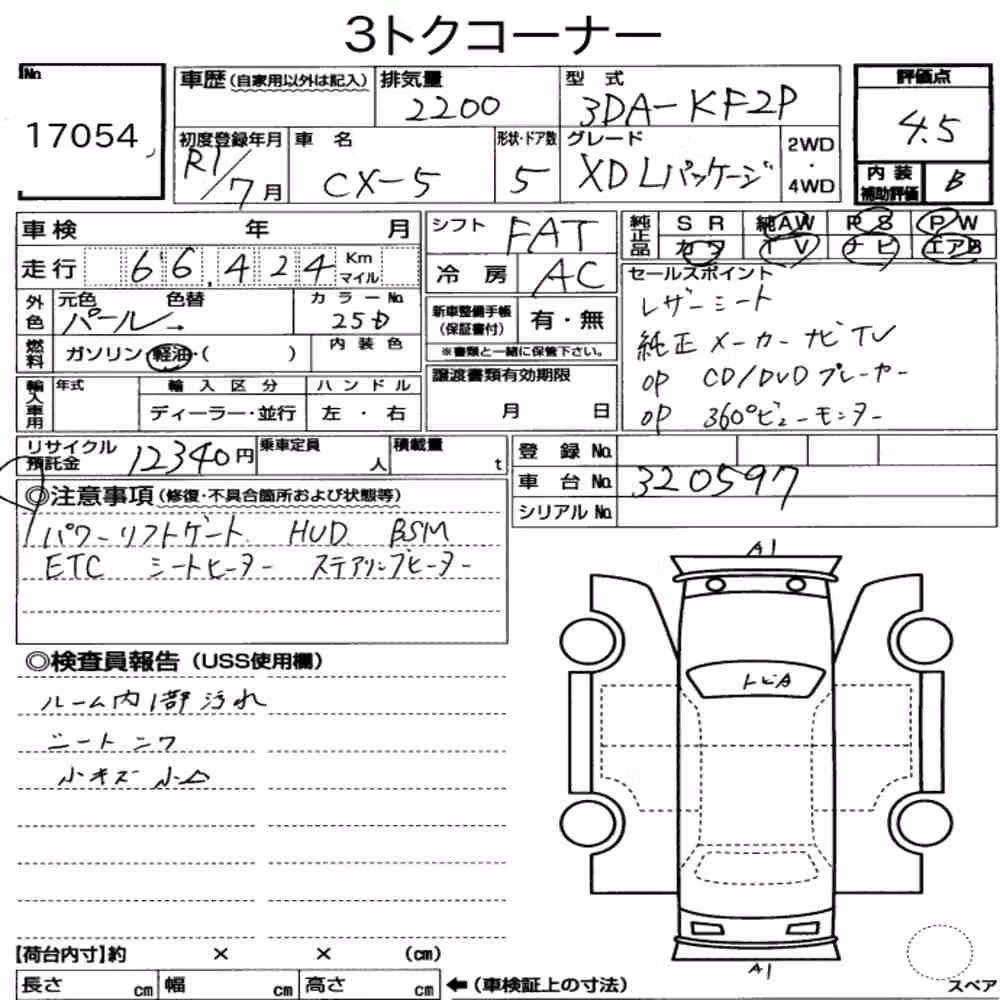 3トクコーナー
No. 17054
車歴(自家用以外は記入) 排気量 2200 型式 3DA-KF2P
初度登録年月 R1/7月 車名 CX-5 形状・ドア数 5 グレード XD Lパッケージ 2WD・4WD
評価点 4.5
内装補助評価 B
車検 年 月
走行 66,424 Km マイル
外色 元色 パール→ 色替 カラーNo. 25D
燃料 ガソリン・軽油・( ) 内装色
輸入車用 年式 輸入区分 ディーラー・並行 ハンドル 左・右
シフト FAT
冷房 AC
新車整備手帳(保証書付) 有・無
※書類と一緒に保管下さい。
譲渡書類有効期限
月 日
純正品 SR 純AW PS PW
カワ TV ナビ エアB
セールスポイント
レザーシート
純正メーカーナビTV
OP CD/DVDプレーヤー
OP 360°ビューモニター
リサイクル預託金 12340円 乗車定員 人 積載量 t
登録No.
車台No. 320597
シリアルNo.
◎注意事項(修復・不具合箇所および状態等)
パワーリフトゲート HUD BSM
ETC シートヒーター ステアリングヒーター
◎検査員報告(USS使用欄)
ルーム内1部汚れ
シートシワ
小キズ 小凹
A1
トビA
A1
【荷台内寸】約 × × (cm)
長さ cm 幅 cm 高さ cm ←(車検証上の寸法)
スペア